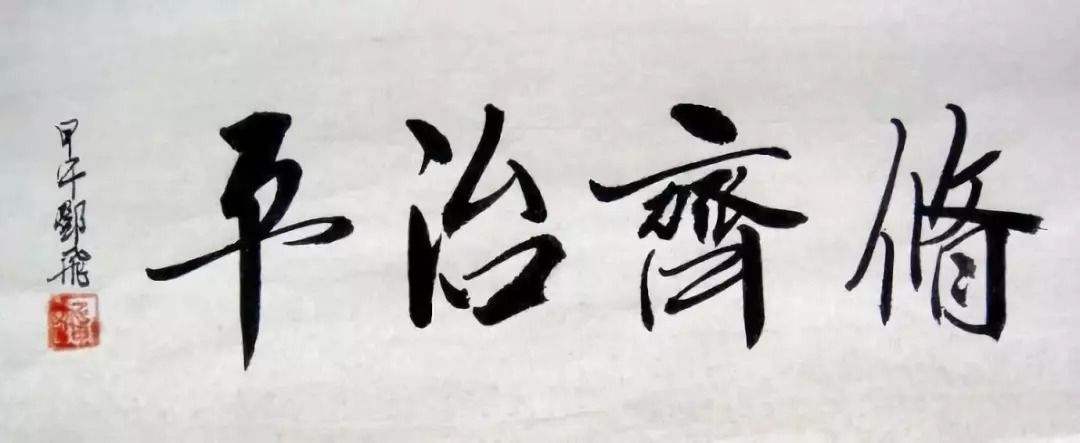 脩齊治平
甲午飛